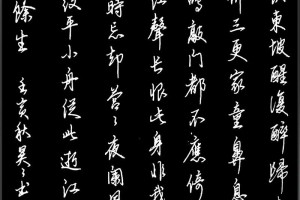 東坡醒復醉歸
三更家童鼻息
鳴敲門都不應倚
江聲長恨此身非我
時忘却營々夜闌
紋平小舟從此逝江
餘生 秋